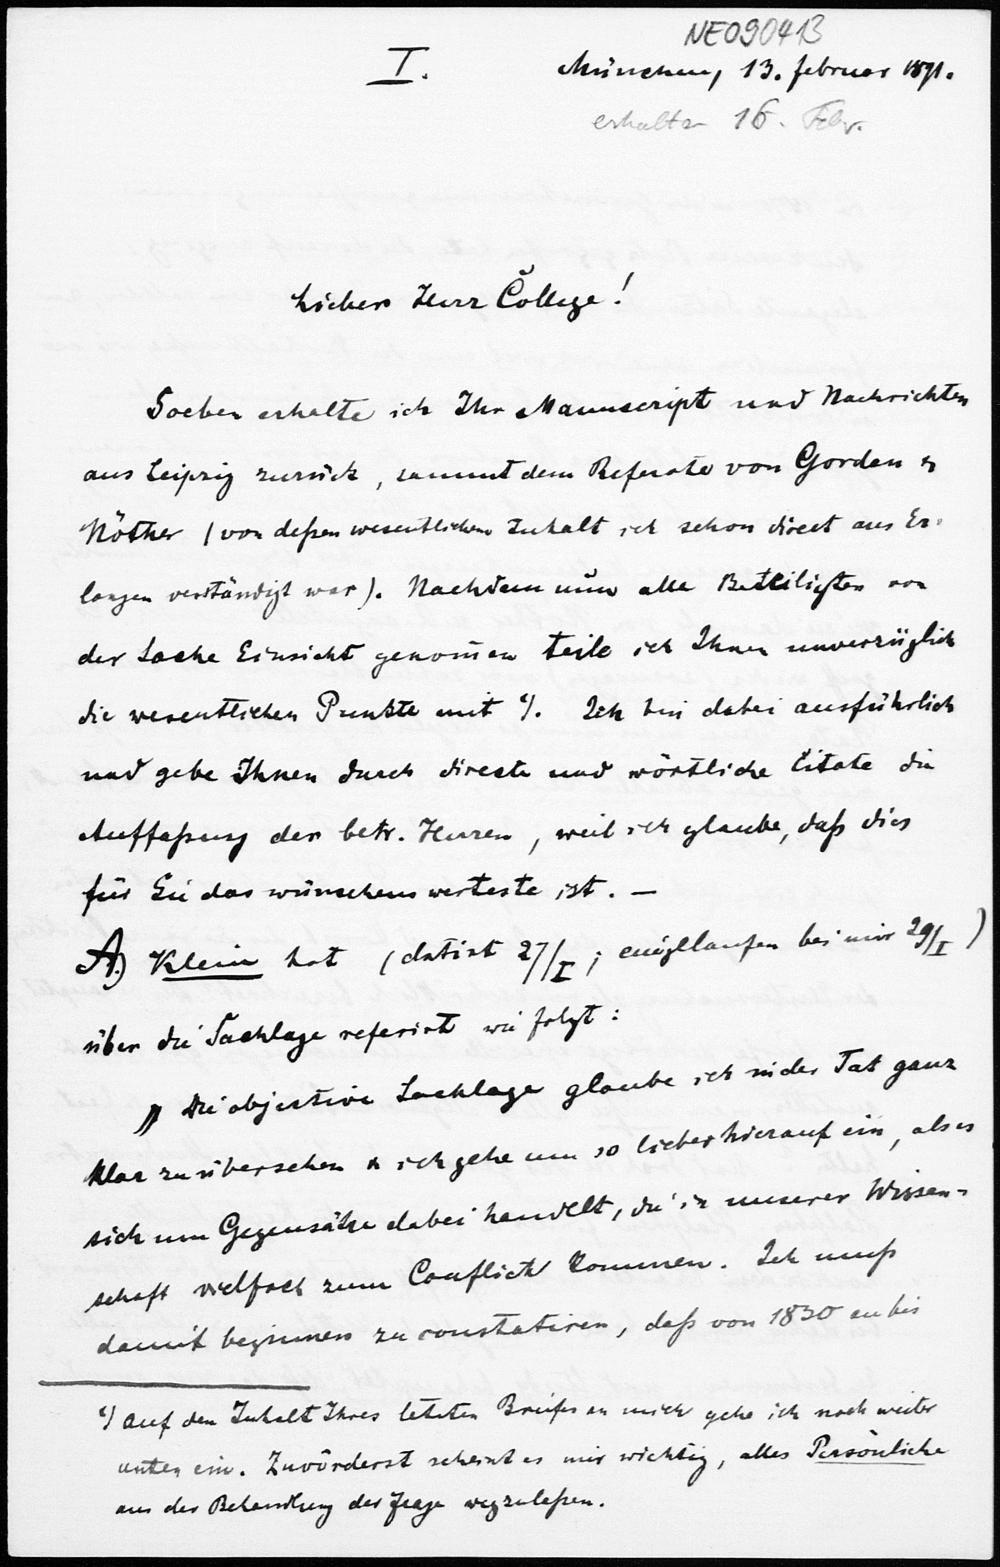 NE090413
I.
München, 13. Februar 1891.
erhalten 16. Febr.
Lieber Herr College!
Soeben erhalte ich Ihr Manuscript und Nachrichten
aus Leipzig zurück, sammt dem Referate von Gordan &
Nöther (von deßen wesentlichem Inhalt ich schon direct aus Er-
langen verständigt war). Nachdem nun alle Beteiligten von
der Sache Einsicht genommen teile ich Ihnen unverzüglich
die wesentlichen Punkte mit ¹). Ich bin dabei ausführlich
und gebe Ihnen durch directe und wörtliche Citate die
Auffaßung der betr. Herren, weil ich glaube, daß dies
für Sie das wünschenswerteste ist. —
A.) Klein hat (datirt 27/I; eingelaufen bei mir 29/I)
über die Sachlage referirt wie folgt:
„Die objective Sachlage glaube ich in der Tat ganz
klar zu übersehen & ich gehe um so lieber hierauf ein, als es
sich um Gegensätze dabei handelt, die in unserer Wissen-
schaft vielfach zum Conflict kommen. Ich muß
damit beginnen zu constatiren, daß von 1830 an bis
¹) Auf den Inhalt Ihres letzten Briefes an mich gehe ich noch weiter
unten ein. Zuvörderst scheint es mir wichtig, alles Persönliche
aus der Behandlung der Frage wegzulaßen.